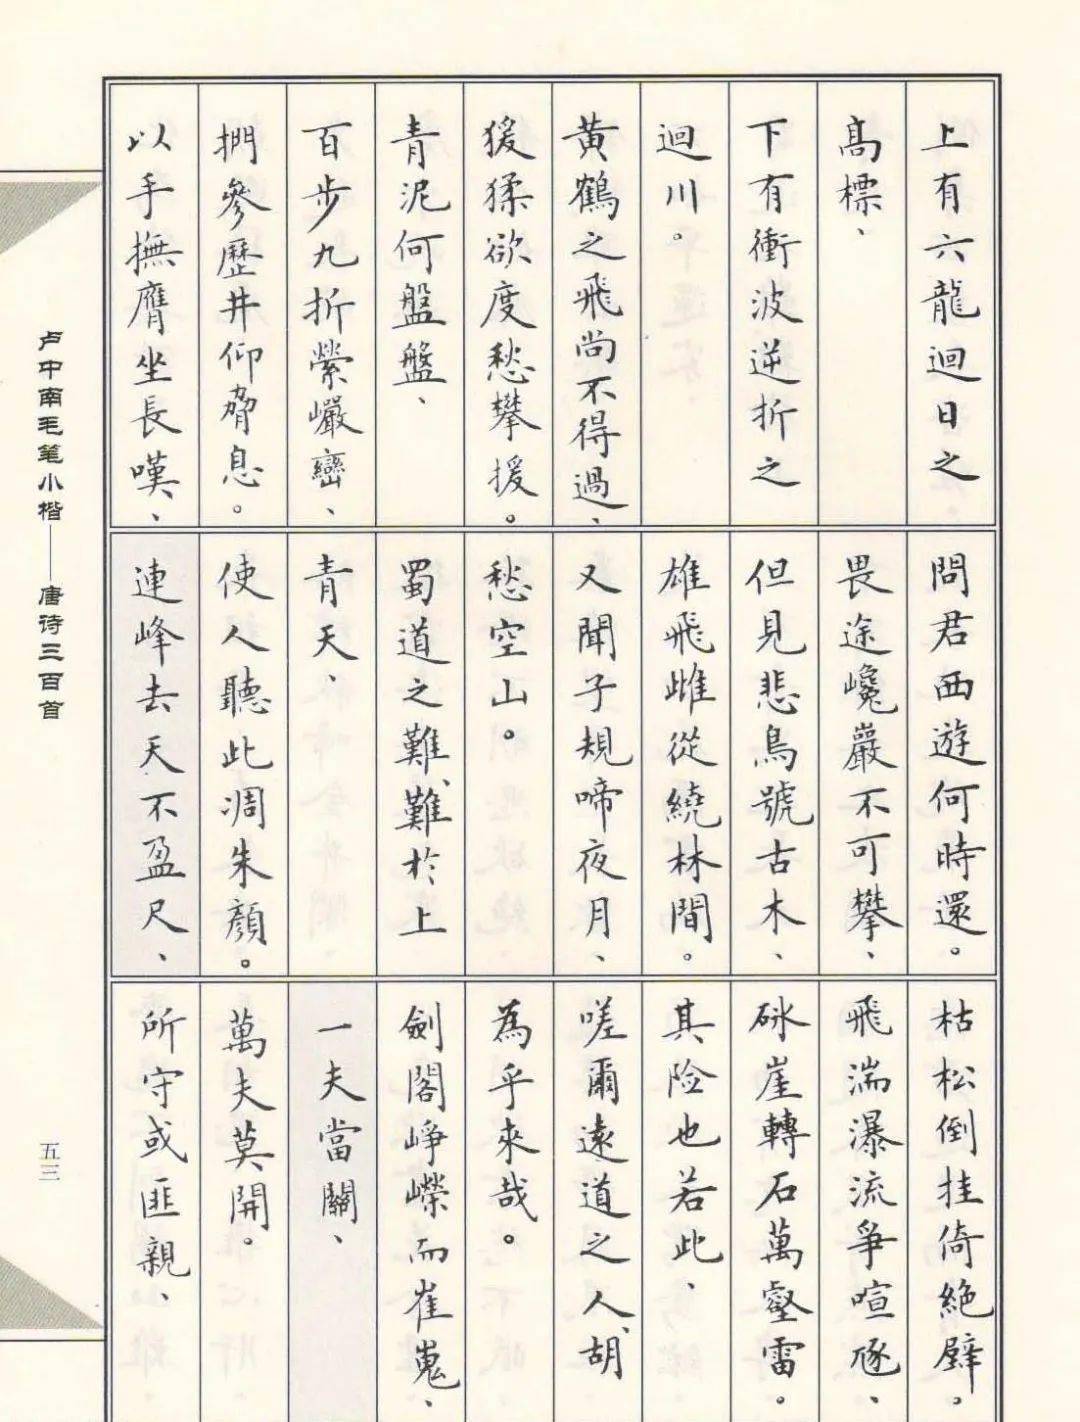 上有六龍迴日之
高標、
下有衝波逆折之
迴川。
黃鶴之飛尚不得過、
猨猱欲度愁攀援。
青泥何盤盤、
百步九折縈巖巒、
捫參歷井仰脅息。
以手撫膺坐長嘆、
問君西遊何時還。
畏途巉巖不可攀、
但見悲鳥號古木、
雄飛雌從繞林間。
又聞子規啼夜月、
愁空山。
蜀道之難、難於上
青天、
使人聽此凋朱顏。
連峰去天不盈尺、
枯松倒挂倚絕壁。
飛湍瀑流爭喧豗、
砯崖轉石萬壑雷。
其险也若此、
嗟爾遠道之人、胡
為乎來哉。
劍閣崢嶸而崔嵬、
一夫當關、
萬夫莫開。
所守或匪親、
卢中南毛笔小楷——唐诗三百首
五三